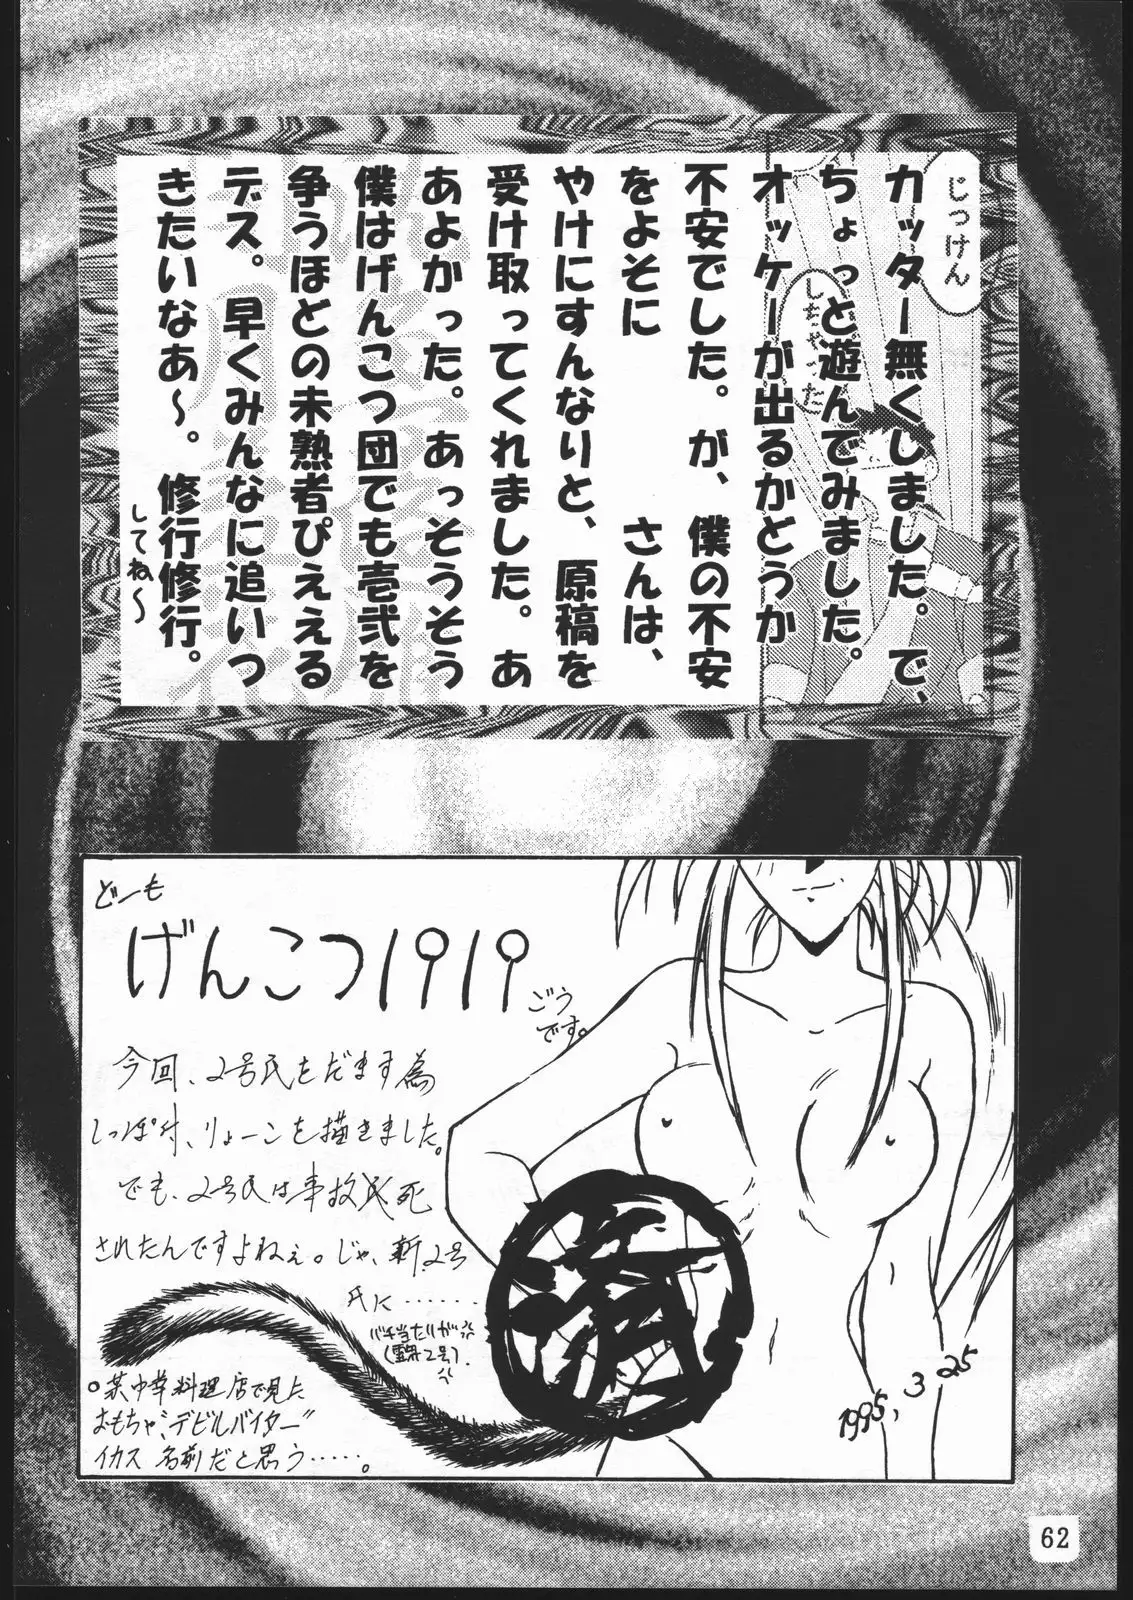 じっけん
しちゃった
カッター無くしました。で、
ちょっと遊んでみました。
オッケーが出るかどうか
不安でした。が、僕の不安
をよそに　　　さんは、
やけにすんなりと、原稿を
受け取ってくれました。あ
あよかった。あっそうそう
僕はげんこつ団でも壱弐を
争うほどの未熟者ぴええる
デス。早くみんなに追いつ
きたいなあ〜。修行修行。
してね〜
どーも
げんこつ1919
ごう
です。
今回、2号氏をだます為
しっぽ付、りょーこを描きました。
でも、2号氏は事故死
されたんですよねぇ。じゃ、新2号
氏に……
バチ当たりが
2号)
済
。某中華料理店で見た
おもちゃ、"デビルバイター"
イカス名前だと思う……。
1995, 3 25
62